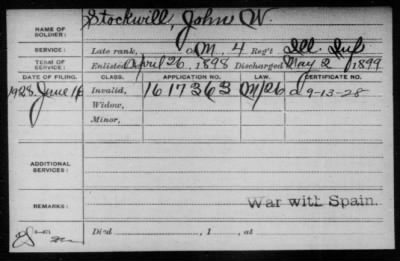 NAME OF SOLDIER: Stockwill, John W.
SERVICE: Late rank, Co M, 4 Reg't Ill. Inf.
TERM OF SERVICE: Enlisted April 26, 1898 Discharged May 2, 1899
DATE OF FILING. CLASS. APPLICATION NO. LAW. CERTIFICATE NO.
1928, June 16 Invalid, 1617363 9-13-28
Widow,
Minor,
ADDITIONAL SERVICES:
REMARKS: War with Spain.
Died , 1 , at